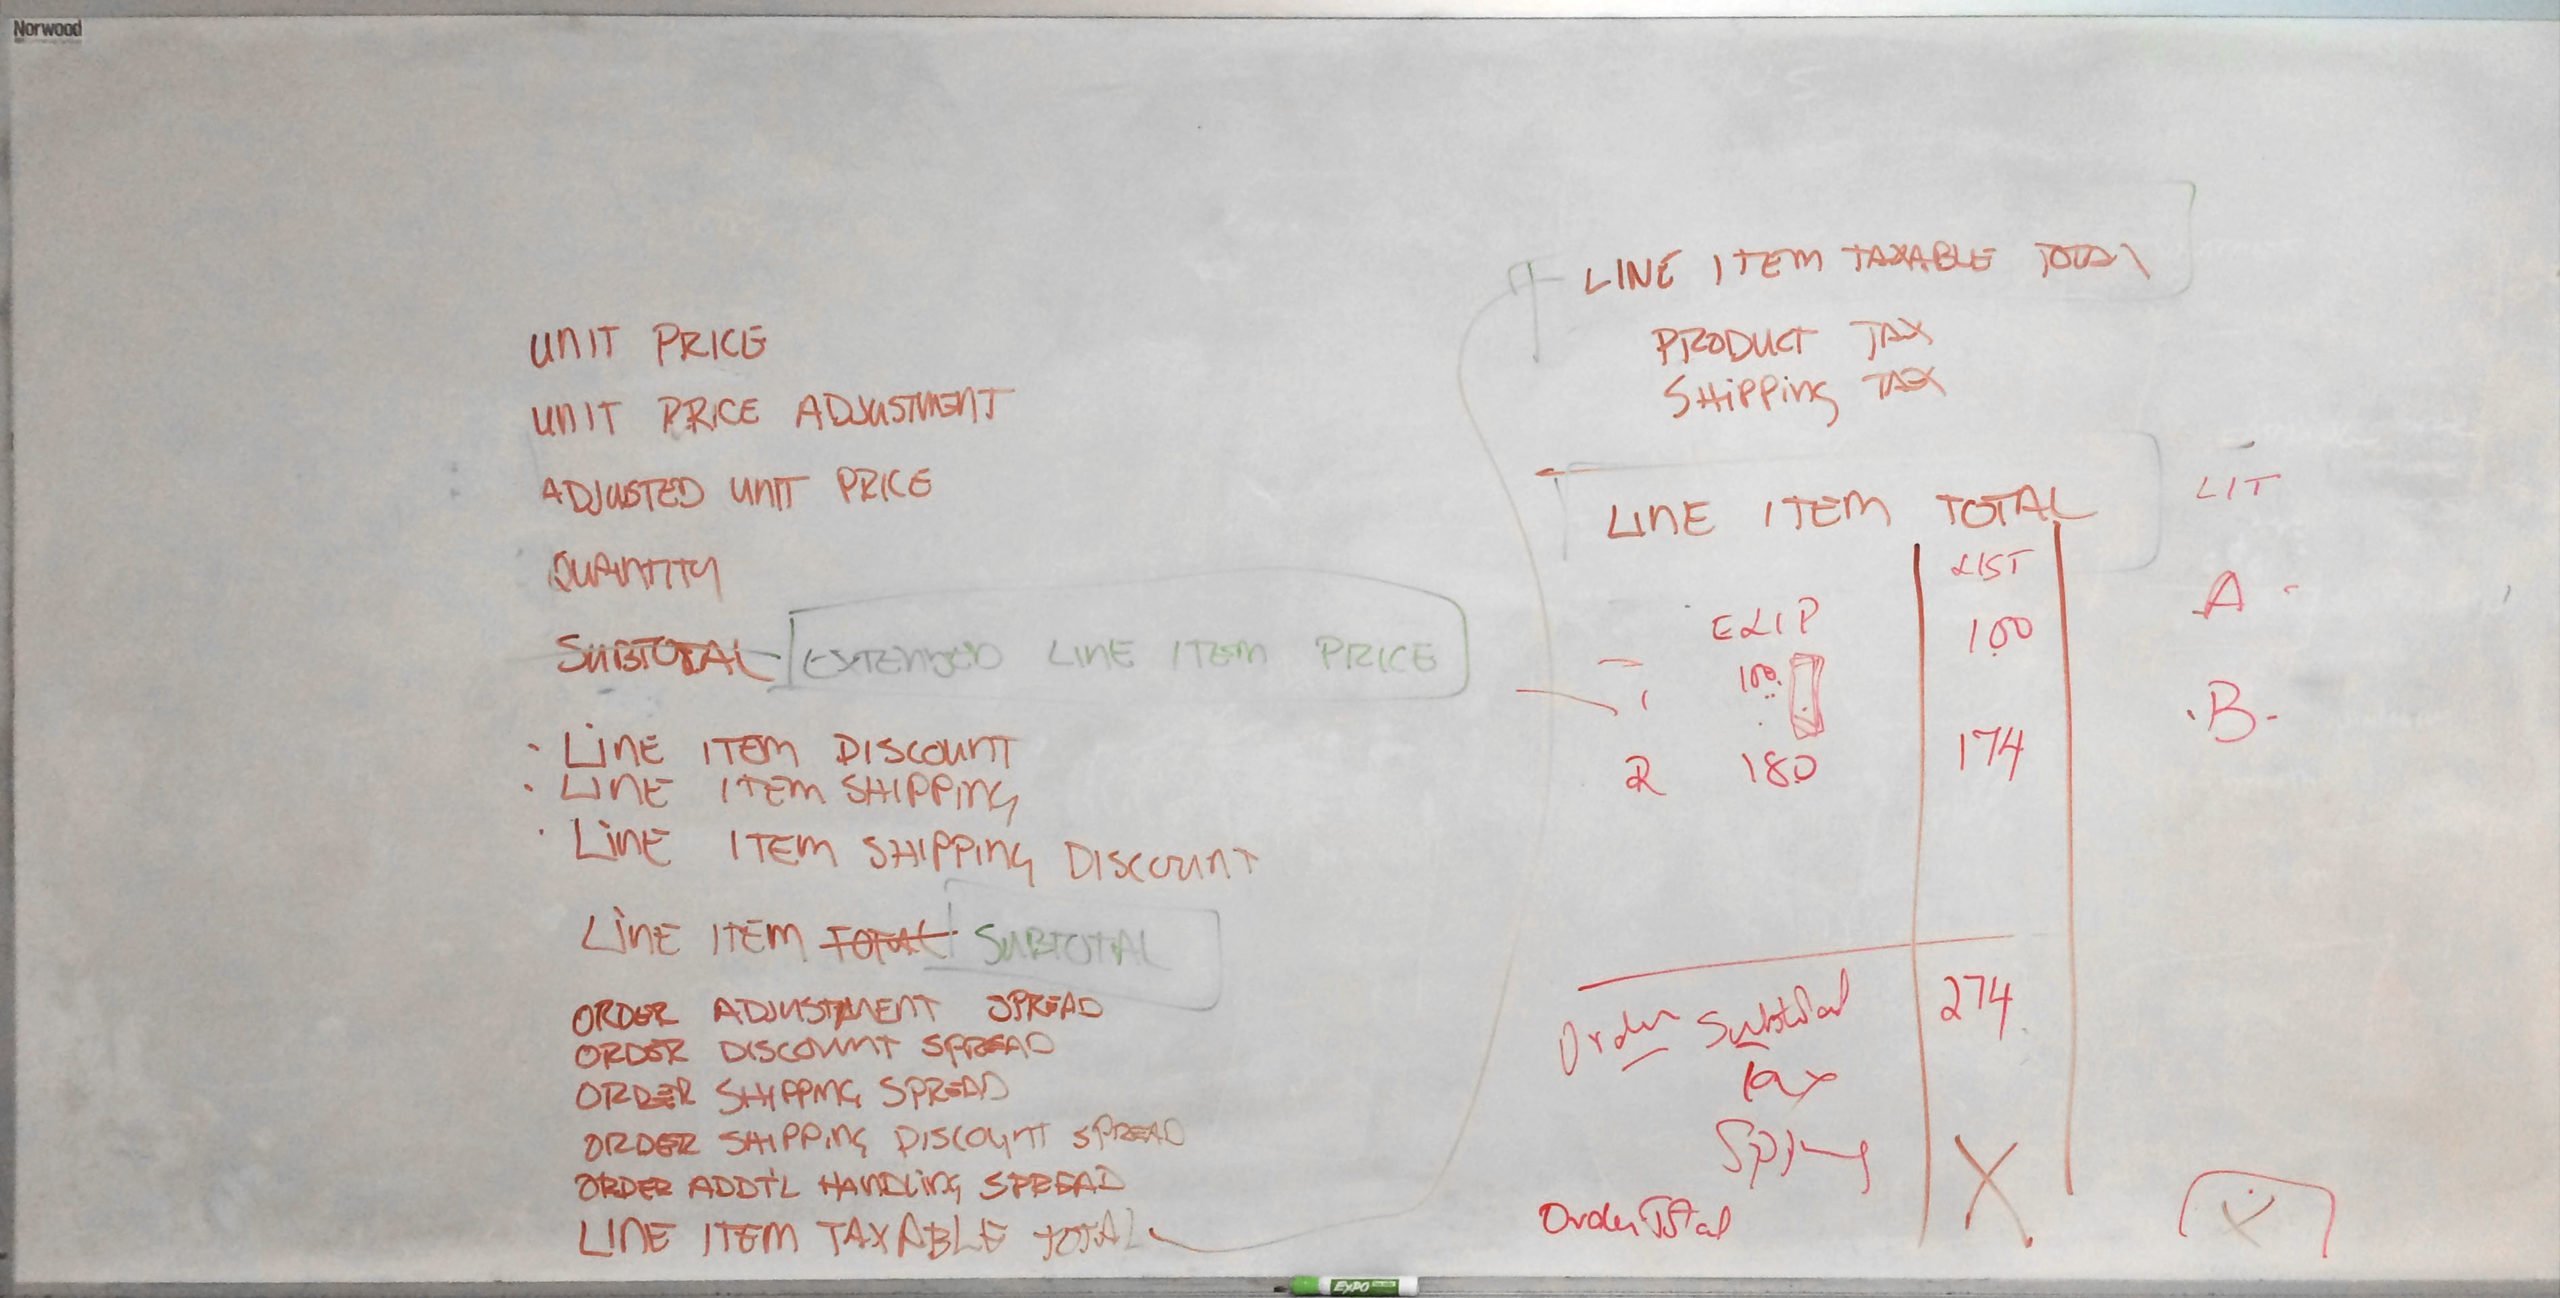 Norwood
UNIT PRICE
UNIT PRICE ADJUSTMENT
ADJUSTED UNIT PRICE
QUANTITY
SUBTOTAL EXTENDED LINE ITEM PRICE
· LINE ITEM DISCOUNT
· LINE ITEM SHIPPING
· LINE ITEM SHIPPING DISCOUNT
LINE ITEM TOTAL SUBTOTAL
ORDER ADJUSTMENT SPREAD
ORDER DISCOUNT SPREAD
ORDER SHIPPING SPREAD
ORDER SHIPPING DISCOUNT SPREAD
ORDER ADDT'L HANDLING SPREAD
LINE ITEM TAXABLE TOTAL
LINE ITEM TAXABLE TOTAL
PRODUCT TAX
SHIPPING TAX
LINE ITEM TOTAL
LIST
ELIP 100
1 100
2 180 174
Order Subtotal 274
Tax
X
Order Total
LIT
A
B
X
EXPO